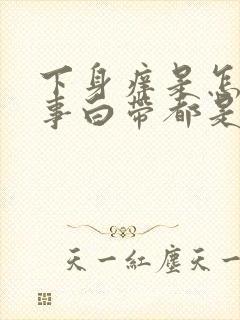 下身痒是怎
事白带都是
天一红尘天一